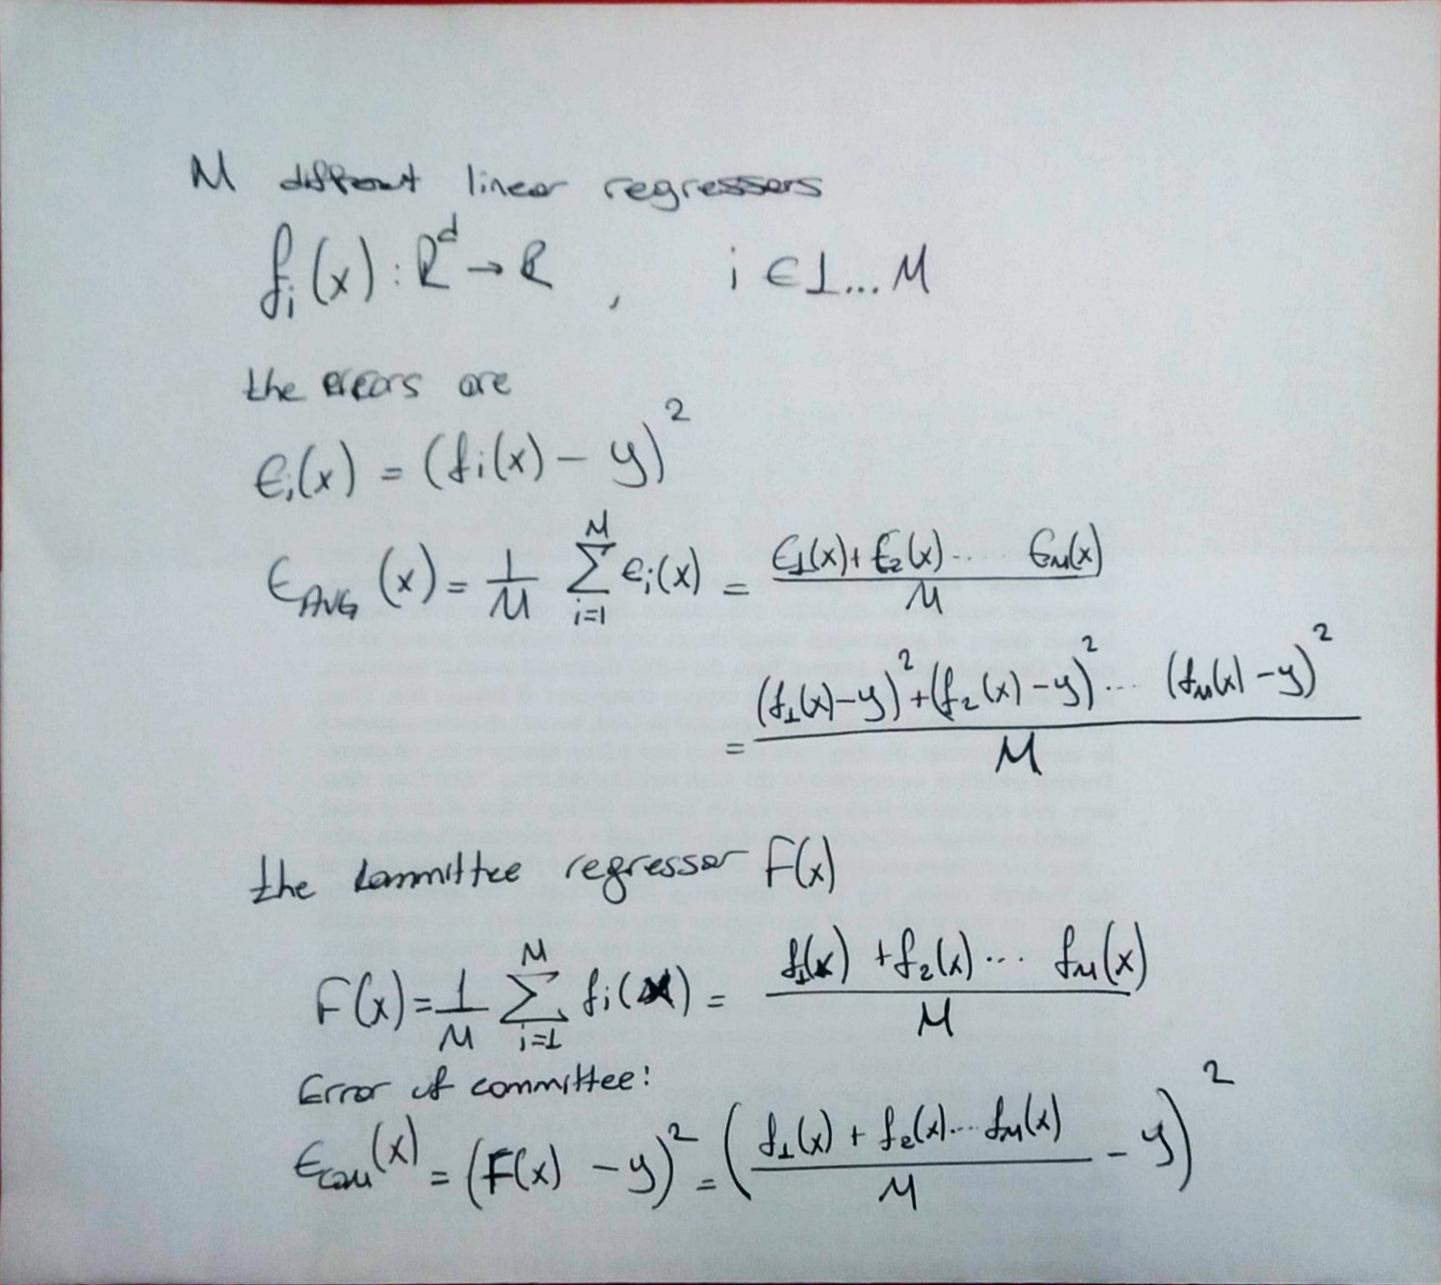 M different linear regressors
fᵢ(x) : ℝᵈ → ℝ , i ∈ 1 ... M
the errors are
ϵᵢ(x) = (fᵢ(x) − y)²
ϵ_AVG (x) = 1/M ∑_{i=1}^{M} ϵᵢ(x) = (ϵ₁(x) + ϵ₂(x) ..... ϵ_M(x)) / M
= ((f₁(x) − y)² + (f₂(x) − y)² ... (f_M(x) − y)²) / M
the committee regressor F(x)
F(x) = 1/M ∑_{i=1}^{M} fᵢ(x) = (f₁(x) + f₂(x) ... f_M(x)) / M
Error of committee:
ϵ_com(x) = (F(x) − y)² = ((f₁(x) + f₂(x) ... f_M(x)) / M − y)²